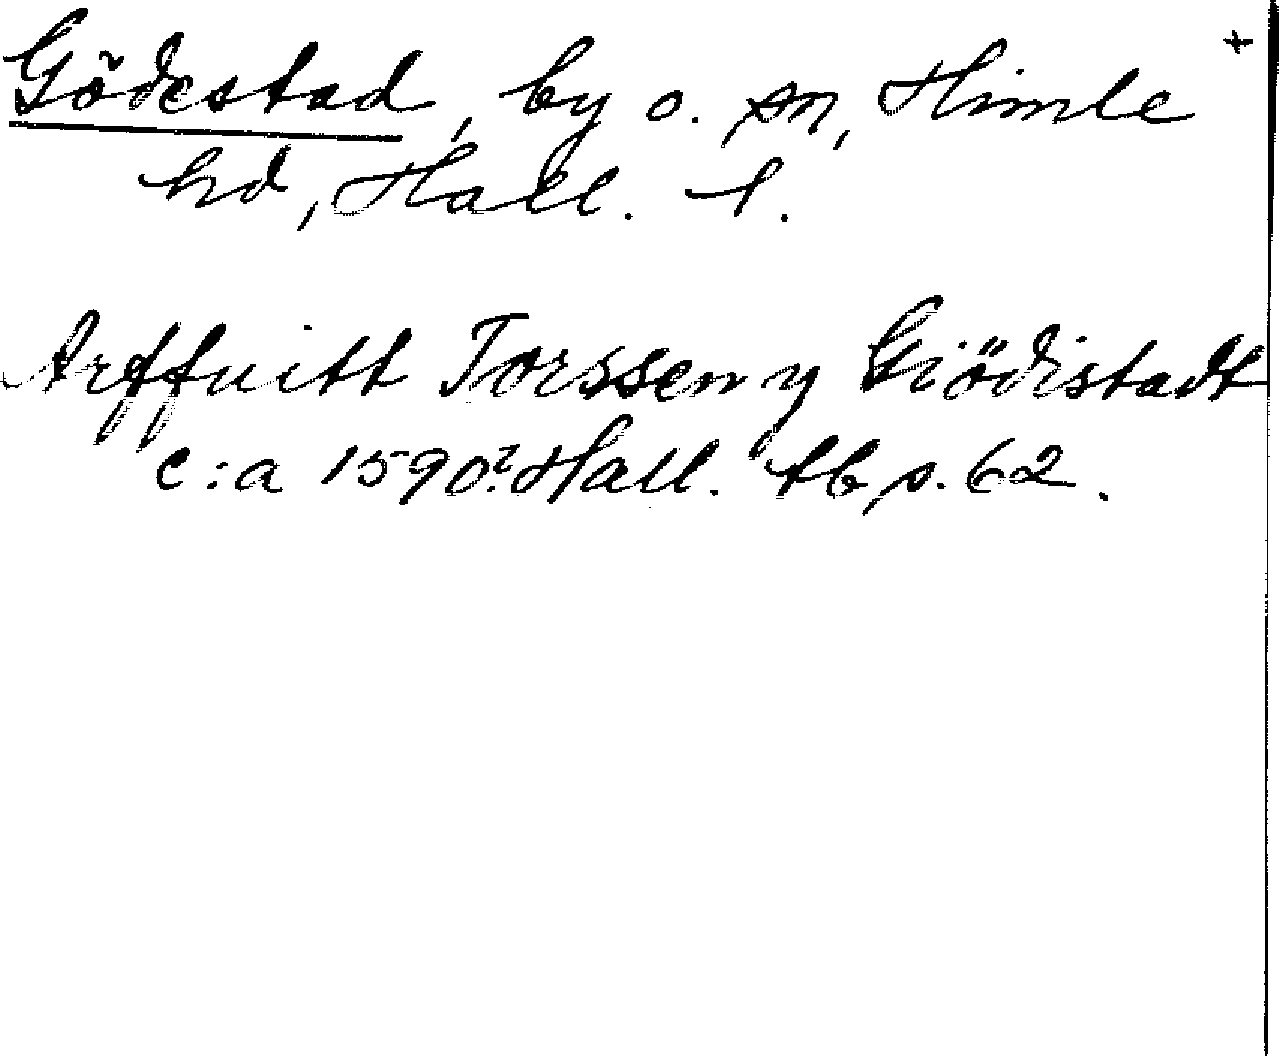 Gödestad, by o. sn, Himle +
hd, Hall. l.
Arffuitt Torssen y Giödistadt
c:a 1590? Hall. tb, s. 62.